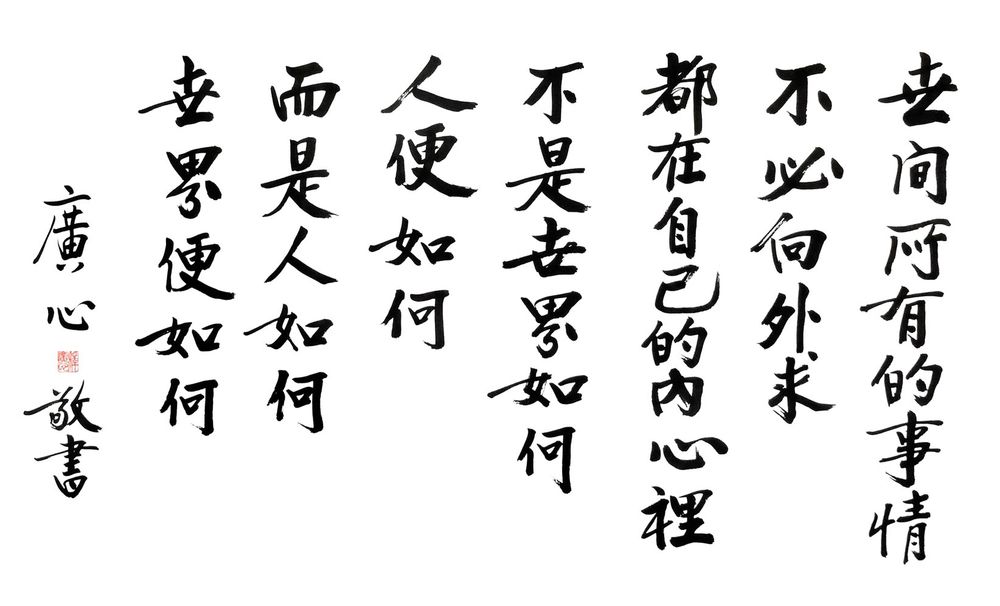 世間所有的事情
不必向外求
都在自己的內心裡
不是世界如何
人便如何
而是人如何
世界便如何
廣心 敬書